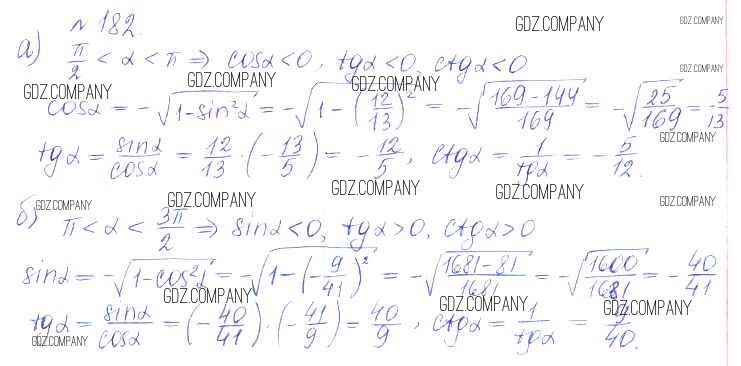 № 182.
GDZ.COMPANY GDZ.COMPANY
а) π/2 < α < π ⇒ cosα < 0, tgα < 0, ctgα < 0
GDZ.COMPANY GDZ.COMPANY GDZ.COMPANY GDZ.COMPANY
cosα = -√(1-sin²α) = -√(1-(12/13)²) = -√((169-144)/169) = -√(25/169) = -5/13
GDZ.COMPANY
tgα = sinα/cosα = 12/13 · (-13/5) = -12/5, ctgα = 1/tgα = -5/12.
GDZ.COMPANY GDZ.COMPANY GDZ.COMPANY GDZ.COMPANY GDZ.COMPANY
б) π < α < 3π/2 ⇒ sinα < 0, tgα > 0, ctgα > 0
sinα = -√(1-cos²α) = -√(1-(-9/41)²) = -√((1681-81)/1681) = -√(1600/1681) = -40/41
GDZ.COMPANY GDZ.COMPANY GDZ.COMPANY
tgα = sinα/cosα = (-40/41) · (-41/9) = 40/9, ctgα = 1/tgα = 9/40.
GDZ.COMPANY